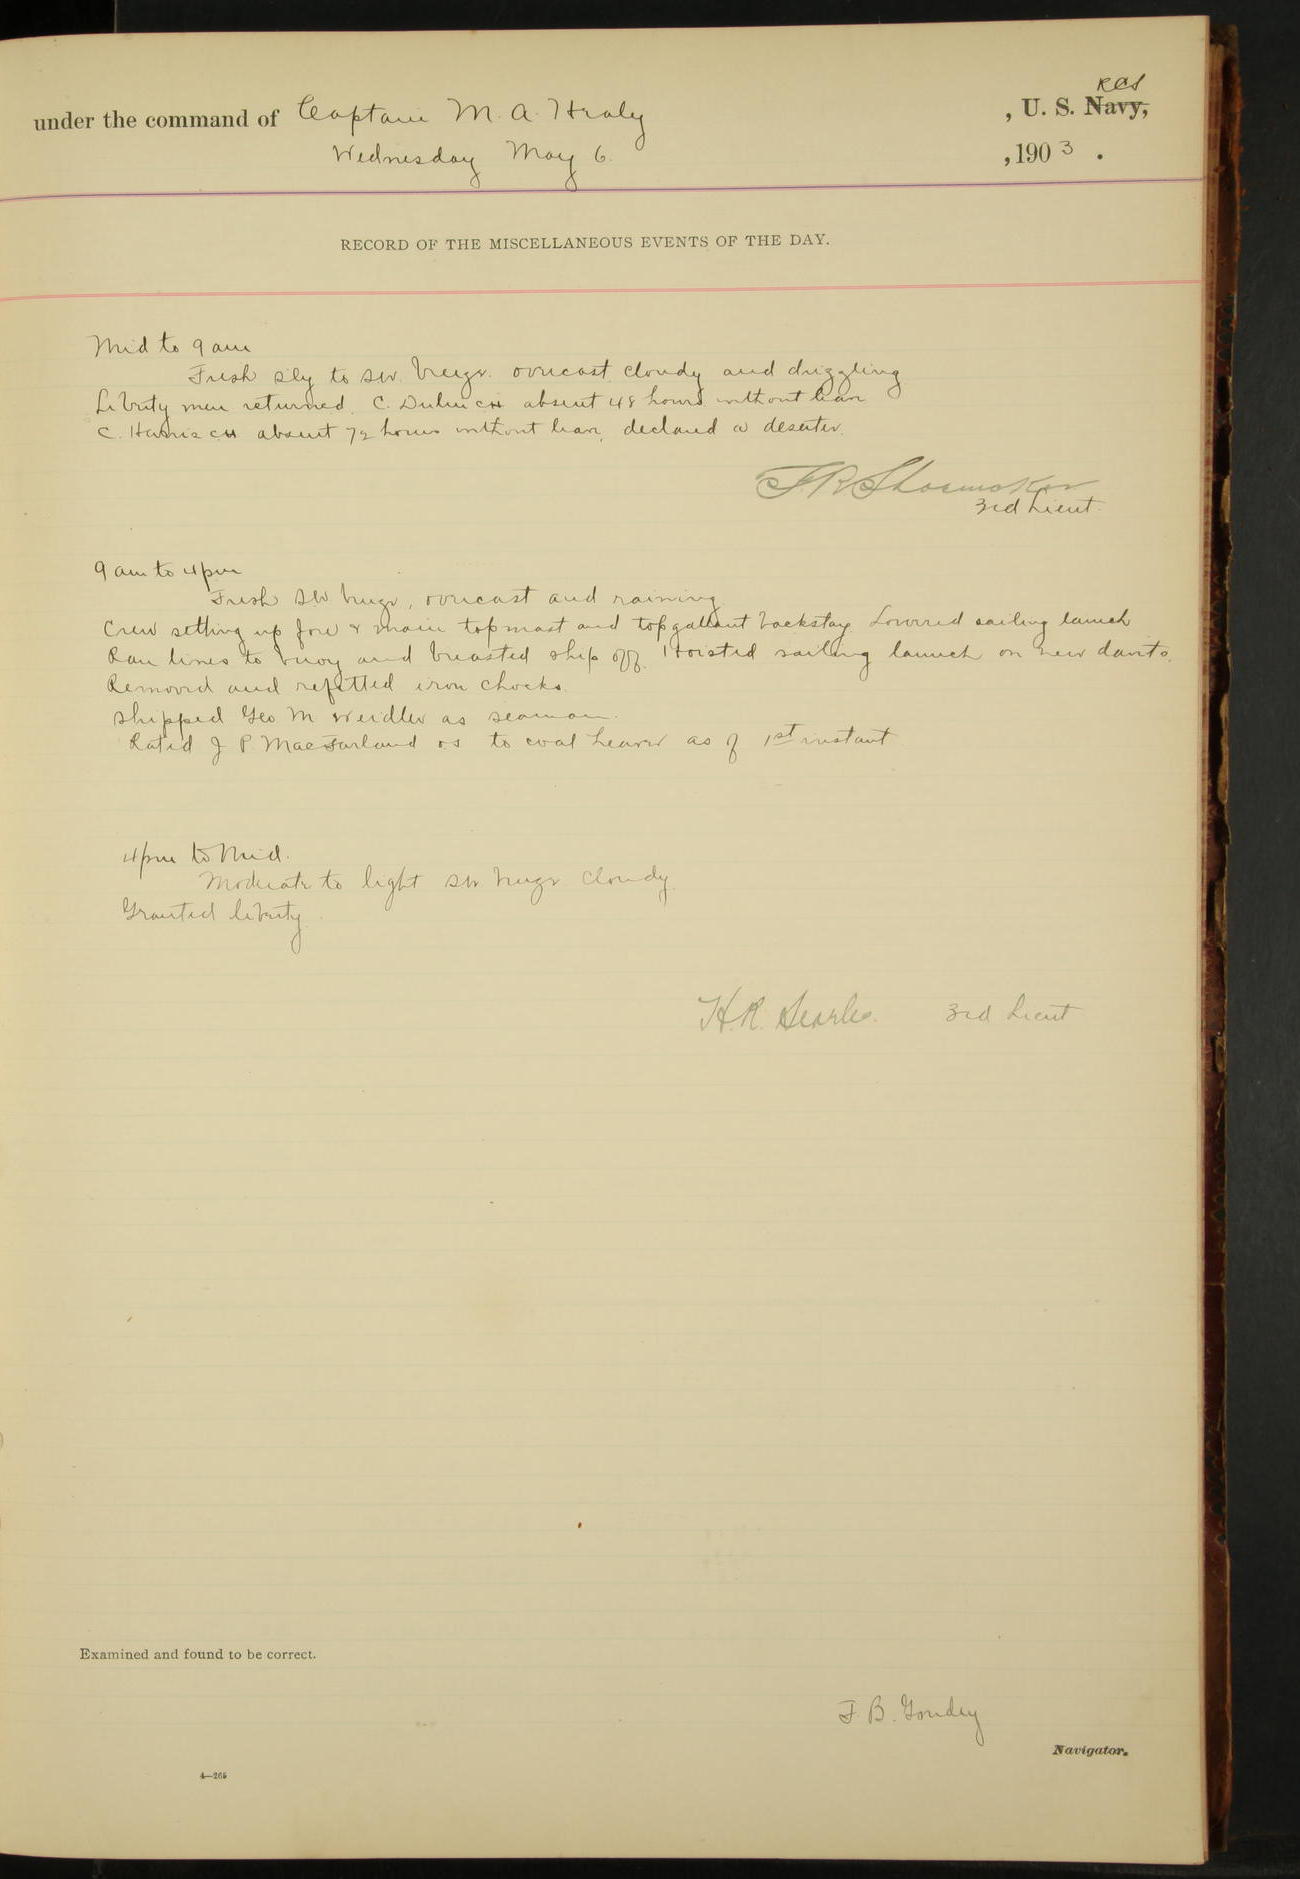 under the command of Captain M. A. Healy , U. S. Navy, RCS
Wednesday May 6 , 1903 .
RECORD OF THE MISCELLANEOUS EVENTS OF THE DAY.
Mid to 9 am
Fresh S'ly to SW. breeze. overcast, cloudy and drizzling
Liberty men returned. C. CH absent 48 hours without leave
C. Harris CH absent 72 hours without leave, declared a deserter.
F. R. Shoemaker
3rd Lieut.
9 am to 4 pm
Fresh SW breeze, overcast and raining
Crew setting up fore & main topmast and topgallant backstay. Lowered sailing launch
Ran lines to buoy and breasted ship off. Hoisted sailing launch on new davits.
Removed and refitted iron chocks.
Shipped Geo M Weidler as seaman.
Rated J P. MacFarland os to coal heaver as of 1st instant
4 pm to Mid.
Moderate to light SW breeze cloudy.
Granted liberty.
H. R. Searles. 3rd Lieut
Examined and found to be correct.
F. B. Goudey
Navigator.
4—265